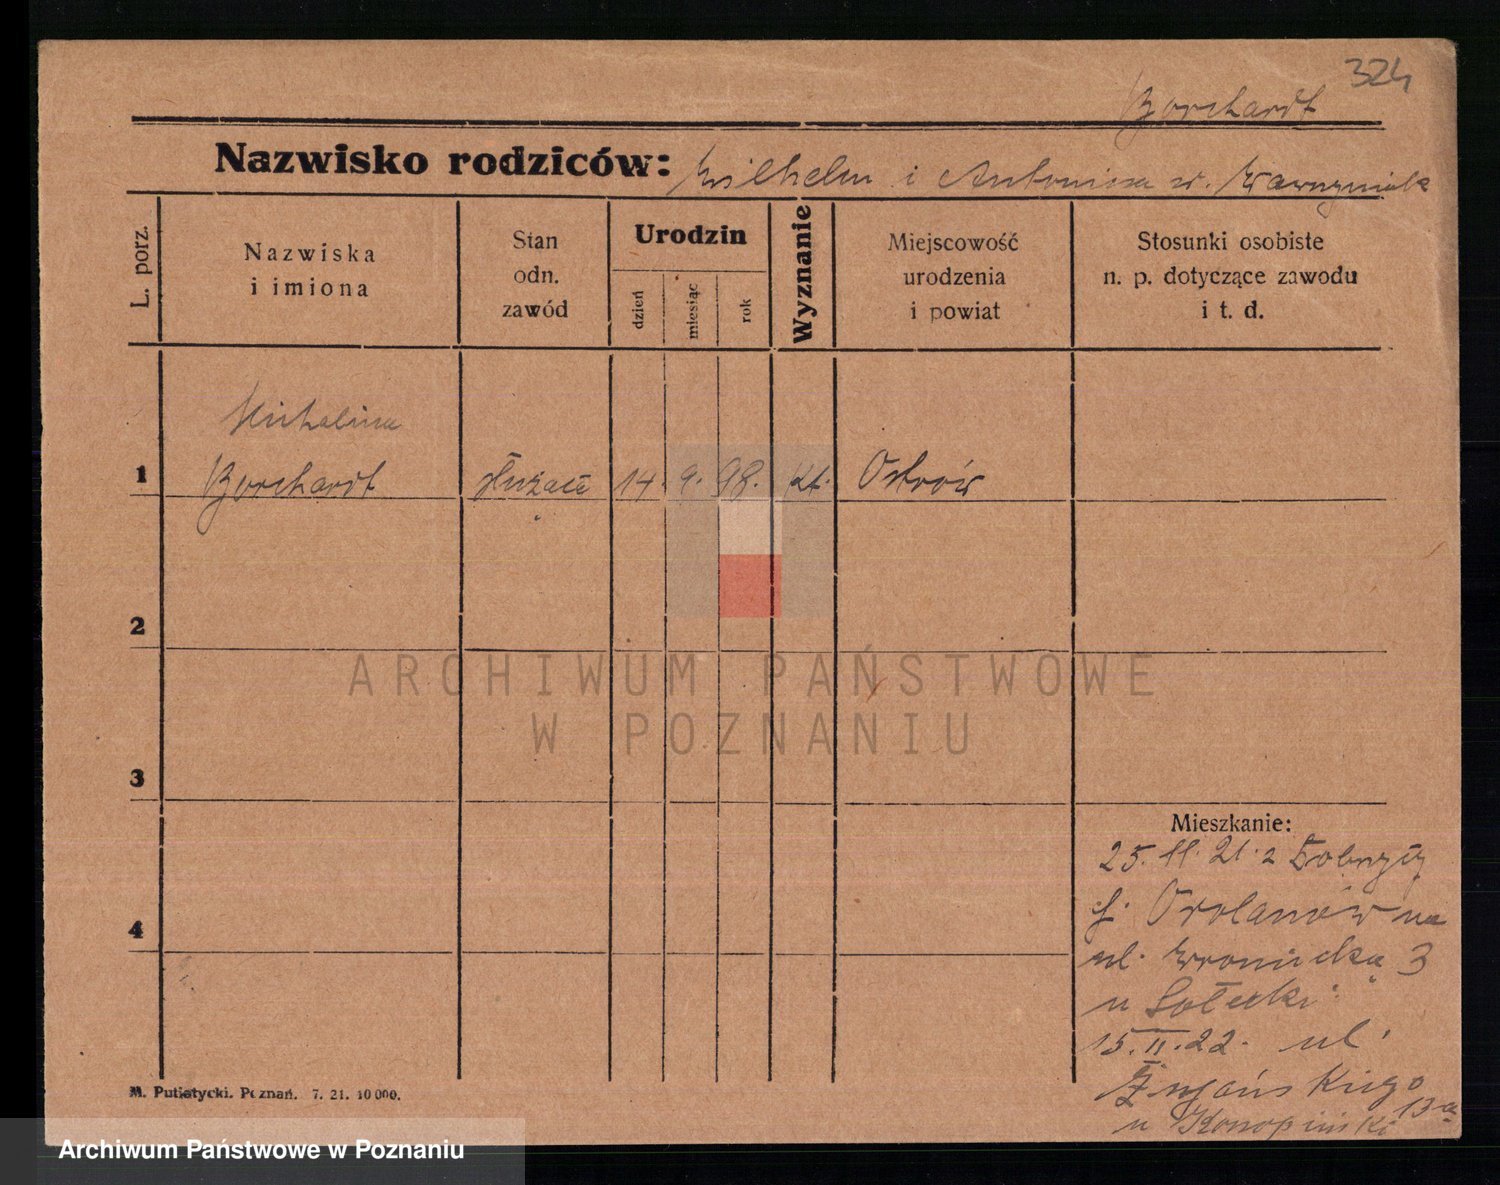 324
Borchardt
Nazwisko rodziców: Wilhelm i Antonina z. Wawrzyniak
L. porz.
Nazwiska
i imiona
Stan
odn.
zawód
Urodzin
dzień
miesiąc
rok
Wyznanie
Miejscowość
urodzenia
i powiat
Stosunki osobiste
n. p. dotyczące zawodu
i t. d.
Michalina
1 Borchardt służąca 14. 9. 98. kt. Ostrów
2
3
4
Mieszkanie:
25. 11. 21. z Dobrzycy
Odolanów na
ul. Wroniecką 3
u Sołecki
15. II. 22. ul.
13a
u Konopiński
M. Putiatycki. Poznań. 7. 21. 10 000.
ARCHIWUM PAŃSTWOWE
W POZNANIU
Archiwum Państwowe w Poznaniu